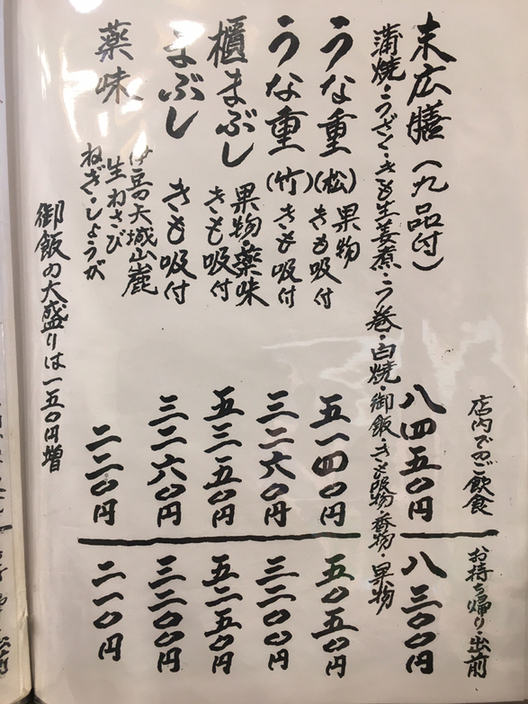 店内でのご飲食
お持ち帰り・出前
末広膳(九品付) 八四五〇円 八三〇〇円
蒲焼・うざく・きも生姜煮・う巻・白焼・御飯・きも吸物・香物・果物
うな重(松) 果物 きも吸付 五一四〇円 五〇五〇円
うな重(竹) きも吸付 三二六〇円 三二〇〇円
櫃まぶし 果物・薬味 きも吸付 五三五〇円 五二五〇円
まぶし きも吸付 三二六〇円 三二〇〇円
薬味 伊豆の天城山麓 生わさび ねぎ・しょうが 二二〇円 二一〇円
御飯の大盛りは一五〇円増